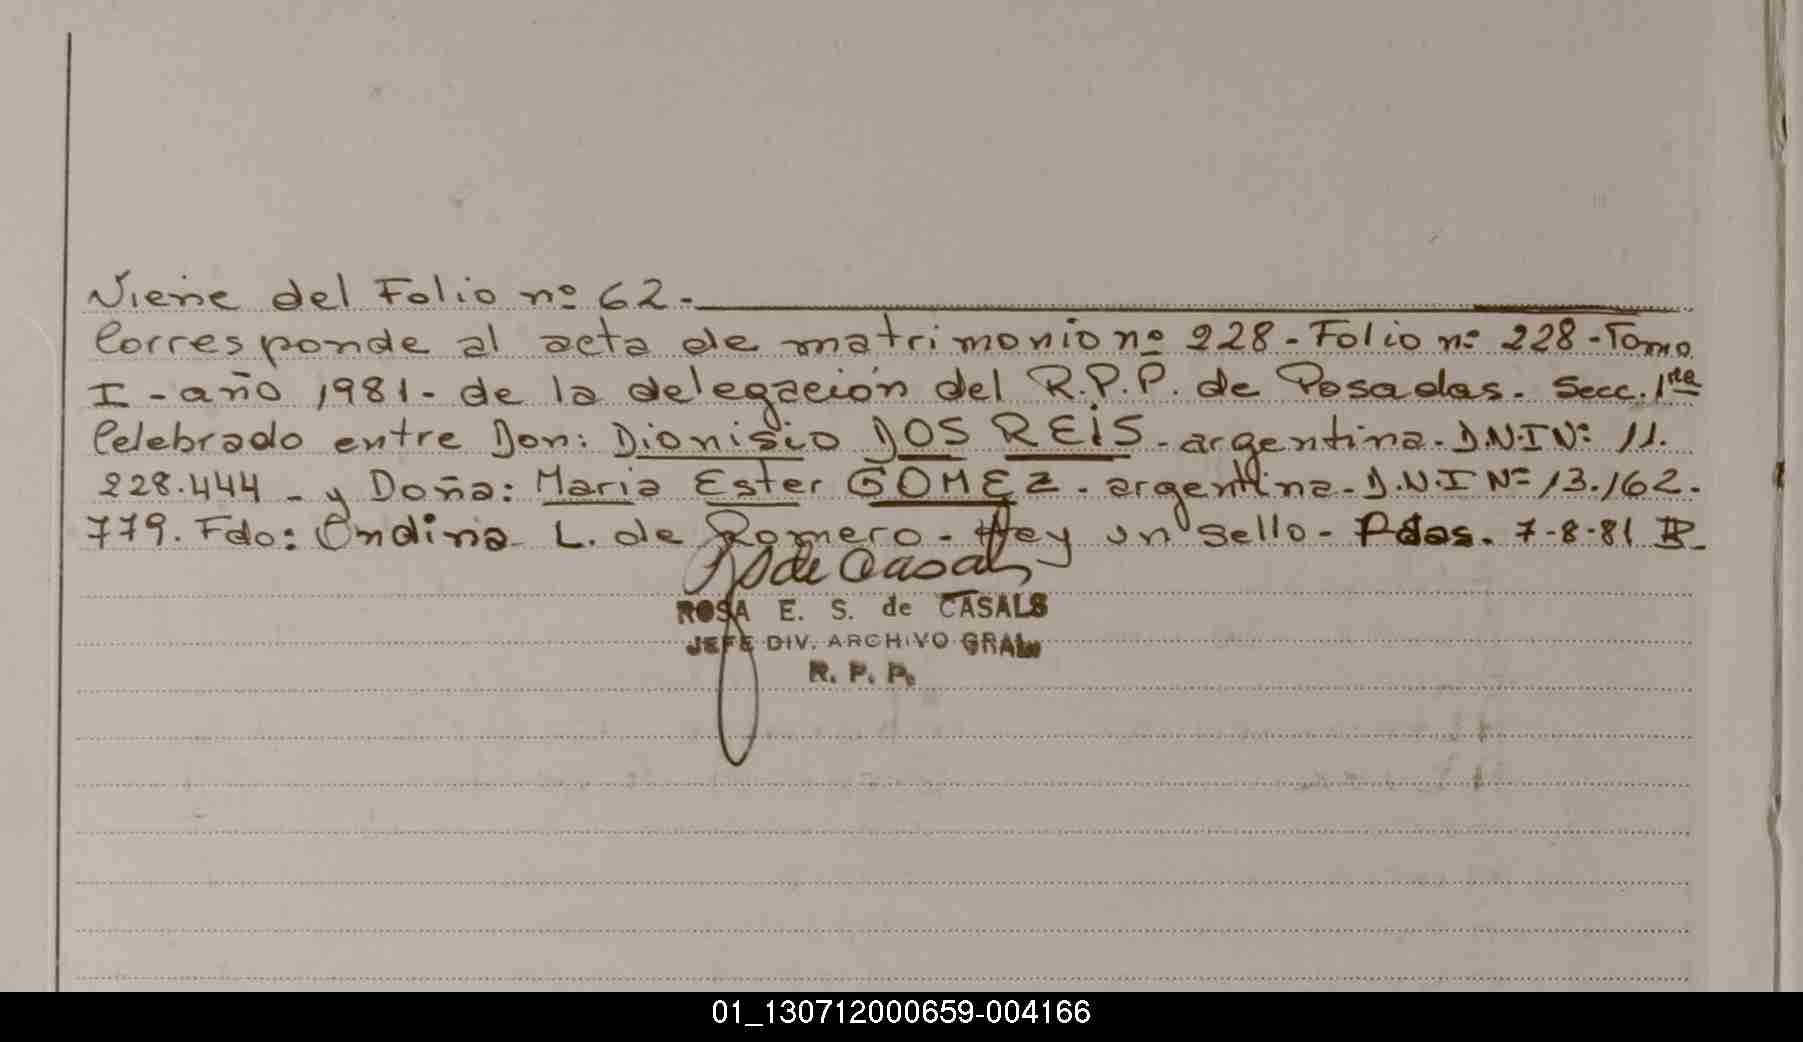 Viene del Folio nº 62.-
Corresponde al acta de matrimonio nº 228 - Folio nº 228 - Tomo
I - año 1981 - de la delegación del R.P.P. de Posadas. Secc. 1ra
Celebrado entre Don: Dionisio DOS REIS - argentina - D.N.I Nº 11.
228.444 - y Doña: Maria Ester GOMEZ - argentina - D.N.I Nº 13.162.
779. Fdo: Ondina L. de Romero - Hay un sello - Pdas. 7-8-81
de Casals
ROSA E. S. de CASALS
JEFE DIV. ARCHIVO GRAL.
R. P. P.
01_130712000659-004166